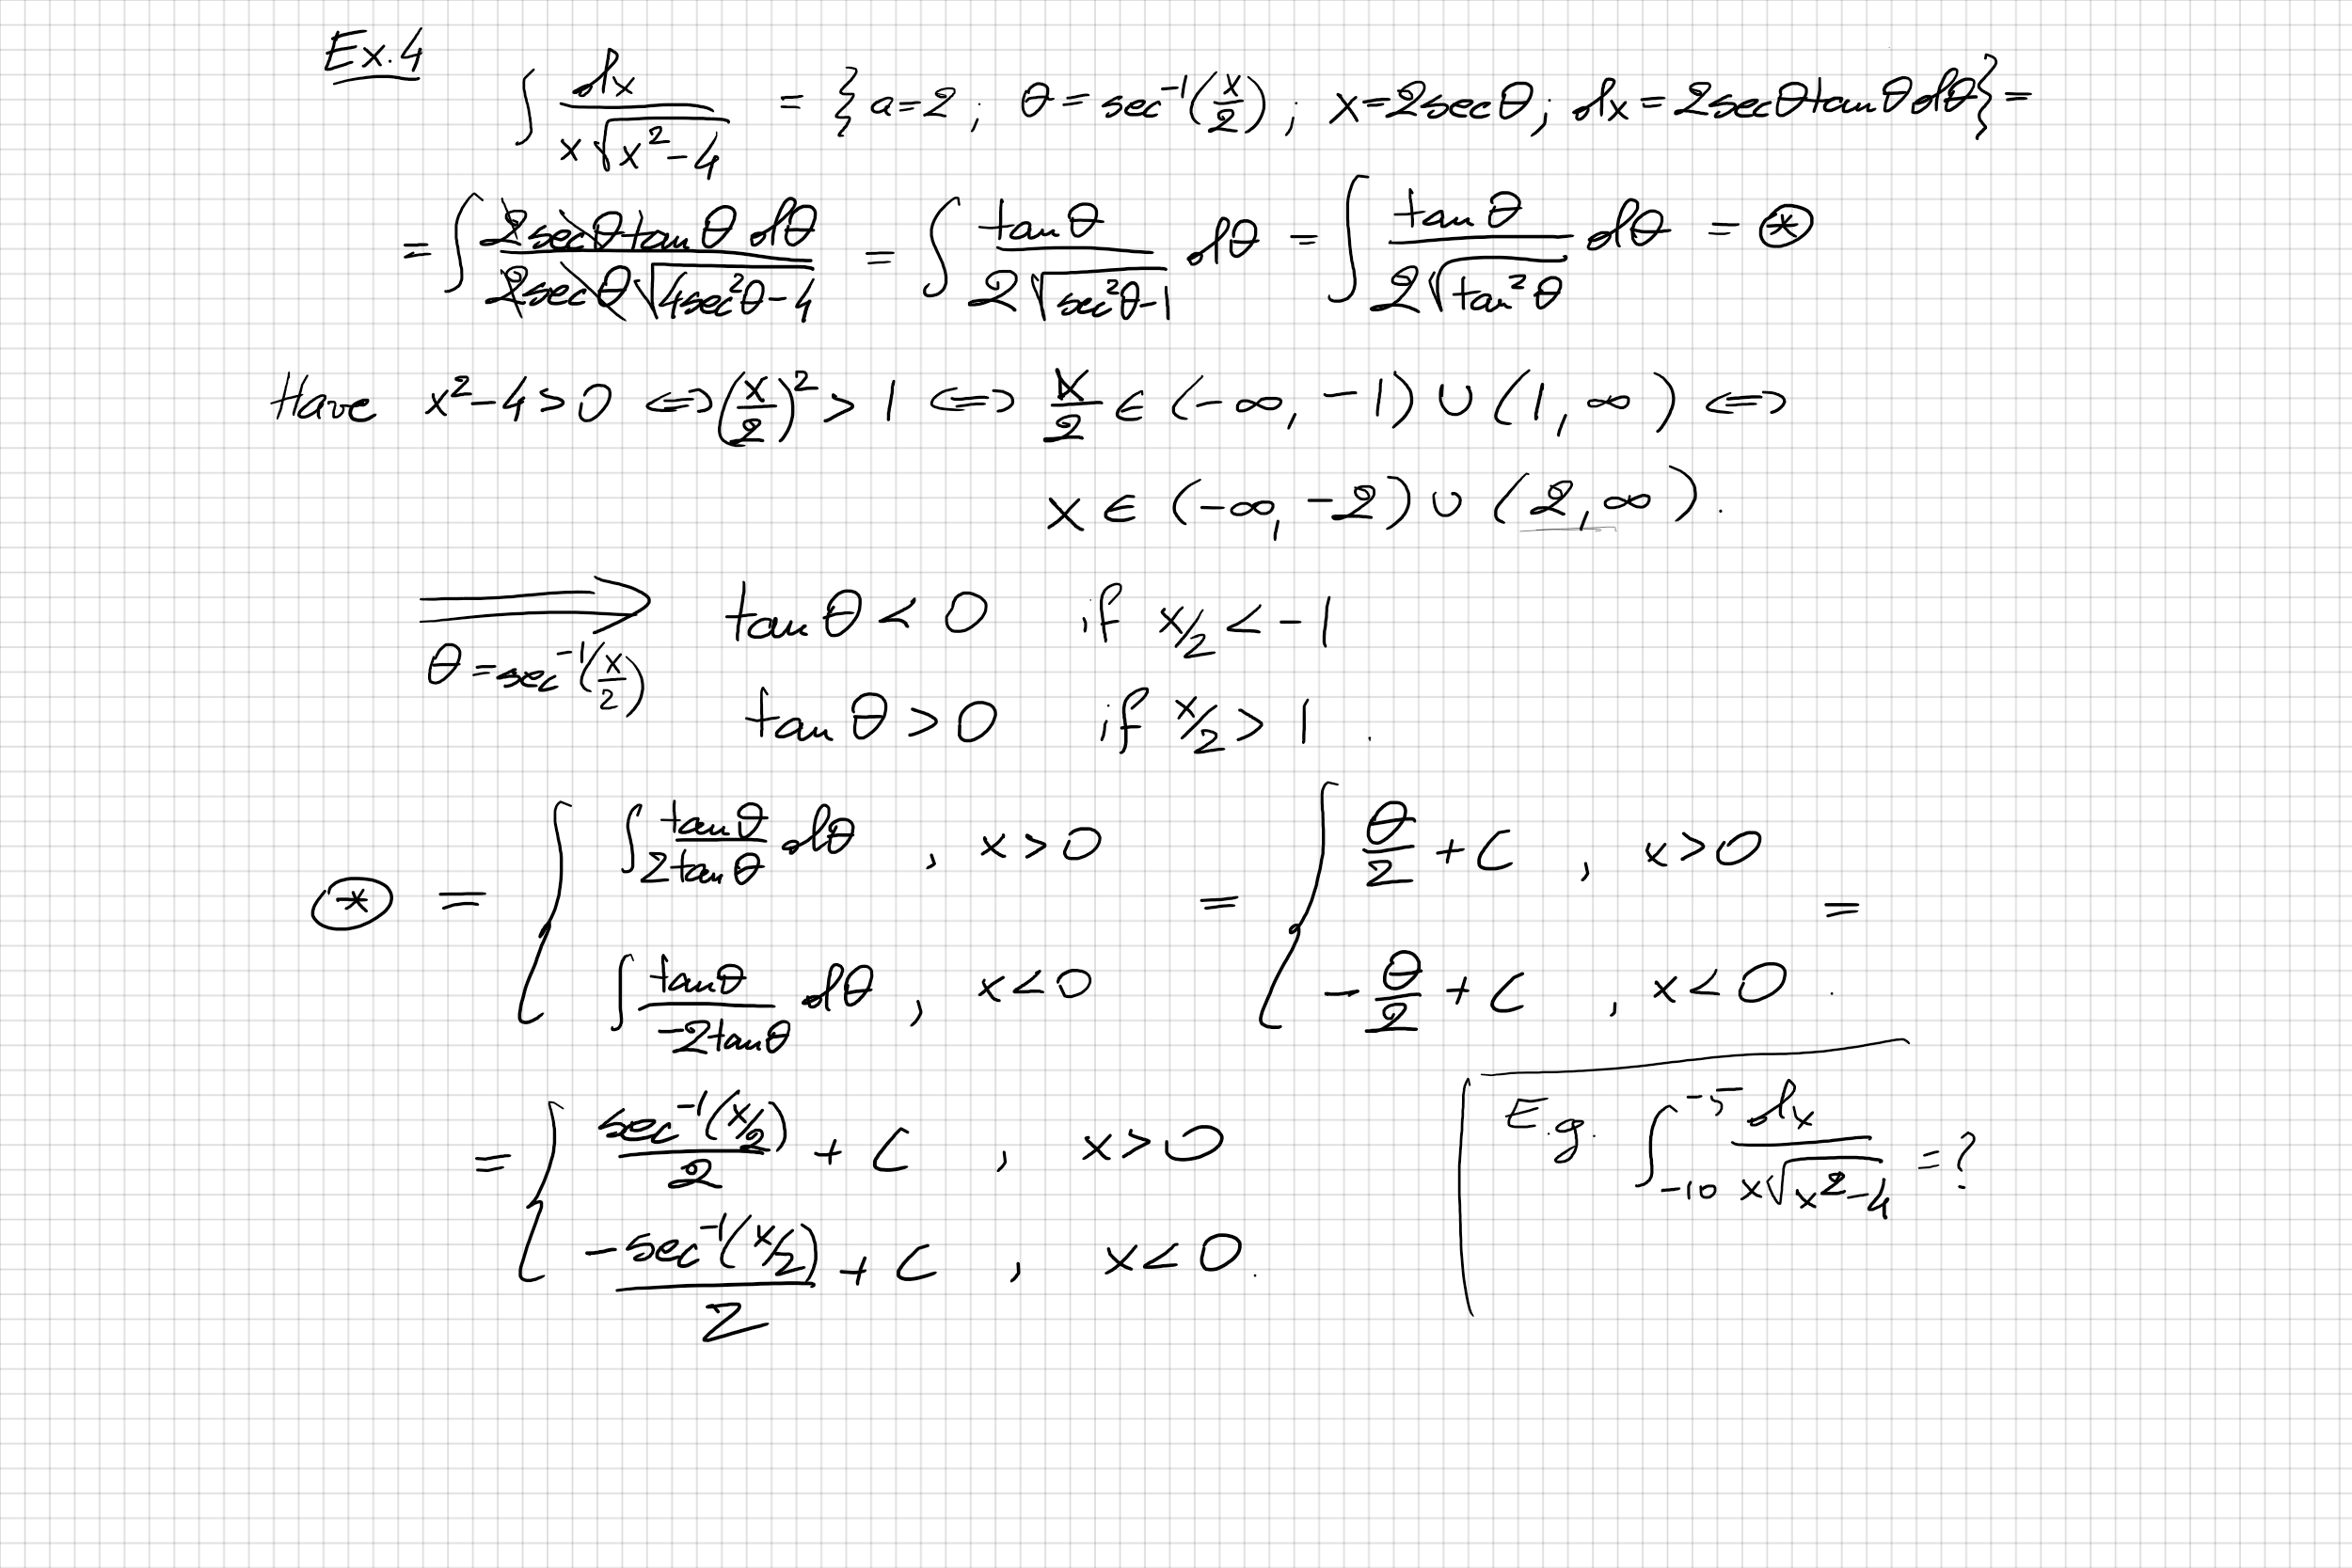 Ex.4
∫ dx / (x√(x²-4)) = { a=2 ; θ = sec⁻¹(x/2) ; x=2secθ; dx = 2secθtanθdθ } =
= ∫ 2secθtanθ dθ / (2secθ√(4sec²θ-4)) = ∫ tanθ / (2√(sec²θ-1)) dθ = ∫ tanθ / (2√(tan²θ)) dθ = ⊛
Have x²-4>0 ⟺ (x/2)² > 1 ⟺ x/2 ∈ (-∞, -1) ∪ (1, ∞) ⟺
x ∈ (-∞, -2) ∪ (2, ∞).
⟹ tanθ < 0 if x/2 < -1
θ = sec⁻¹(x/2)
tanθ > 0 if x/2 > 1.
⊛ = { ∫ tanθ / (2tanθ) dθ , x>0 = { θ/2 + C , x>0 =
∫ tanθ / (-2tanθ) dθ , x<0 -θ/2 + C , x<0.
= { sec⁻¹(x/2) / 2 + C , x>0
-sec⁻¹(x/2) / 2 + C , x<0.
E.g. ∫₋₁₀⁻⁵ dx / (x√(x²-4)) = ?